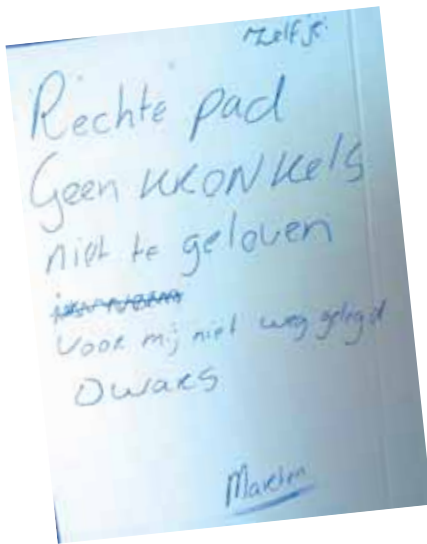 Rechte pad
Geen KRONKels
niet te geloven
voor mij niet weg gelegd
Dwars